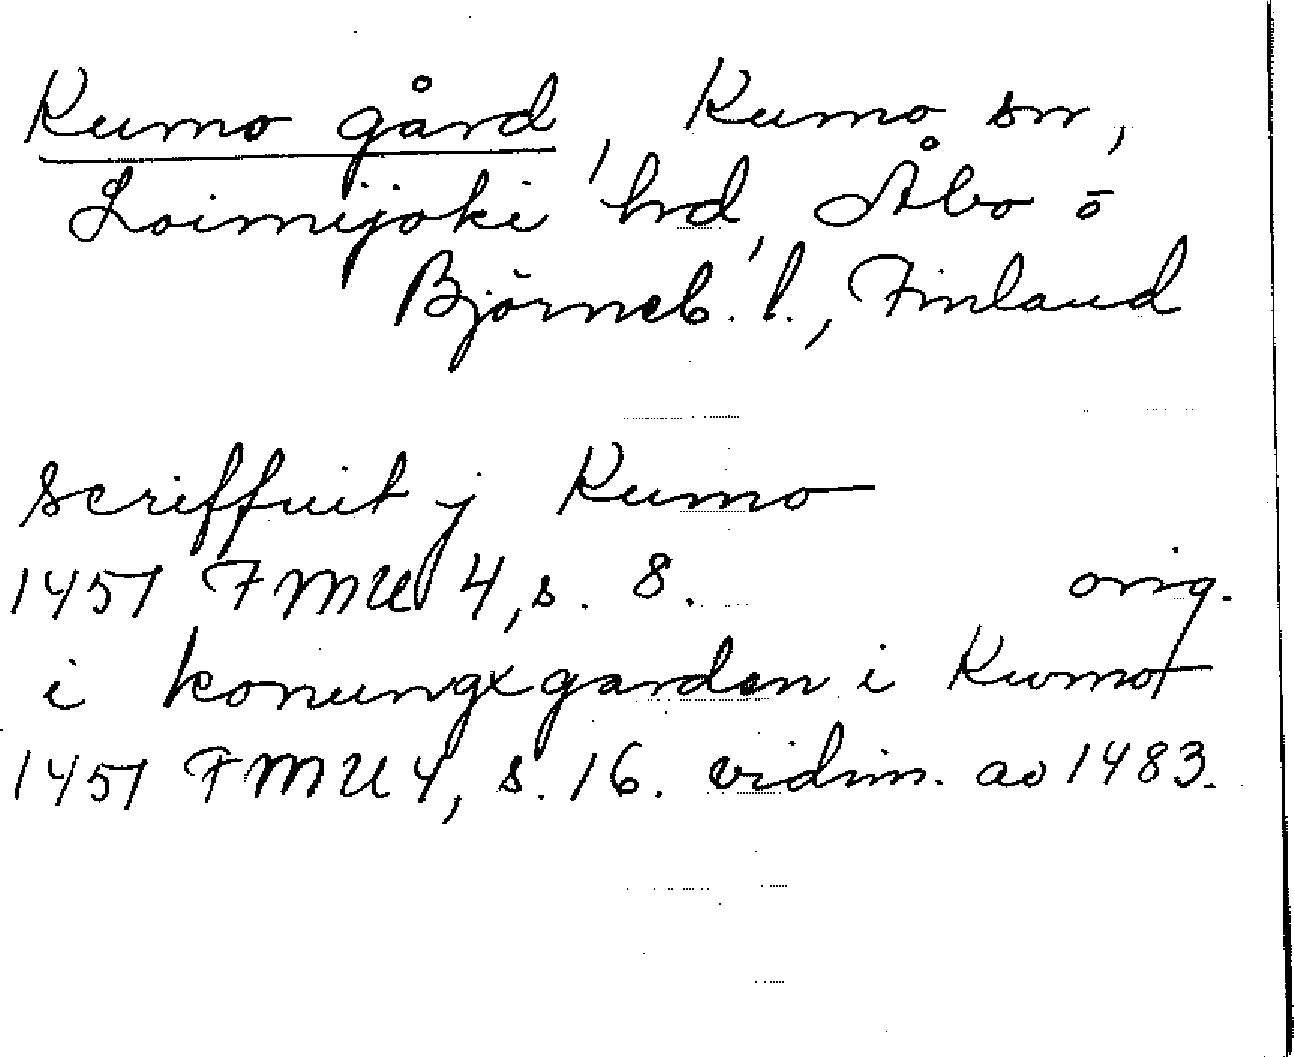 Kumo gård, Kumo sn,
Loimijoki hd, Åbo o
Björneb. l., Finland
scriffuit j Kumo
1457 FMU 4, s. 8. orig.
i konungxgarden i Kumo
1457 FMU 4, s. 16. vidim. av 1483.